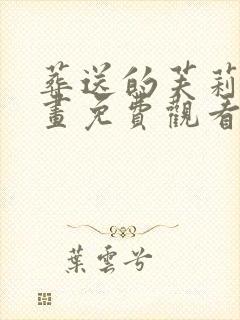 葬送的芙莉
畫免費觀看
葉雲兮